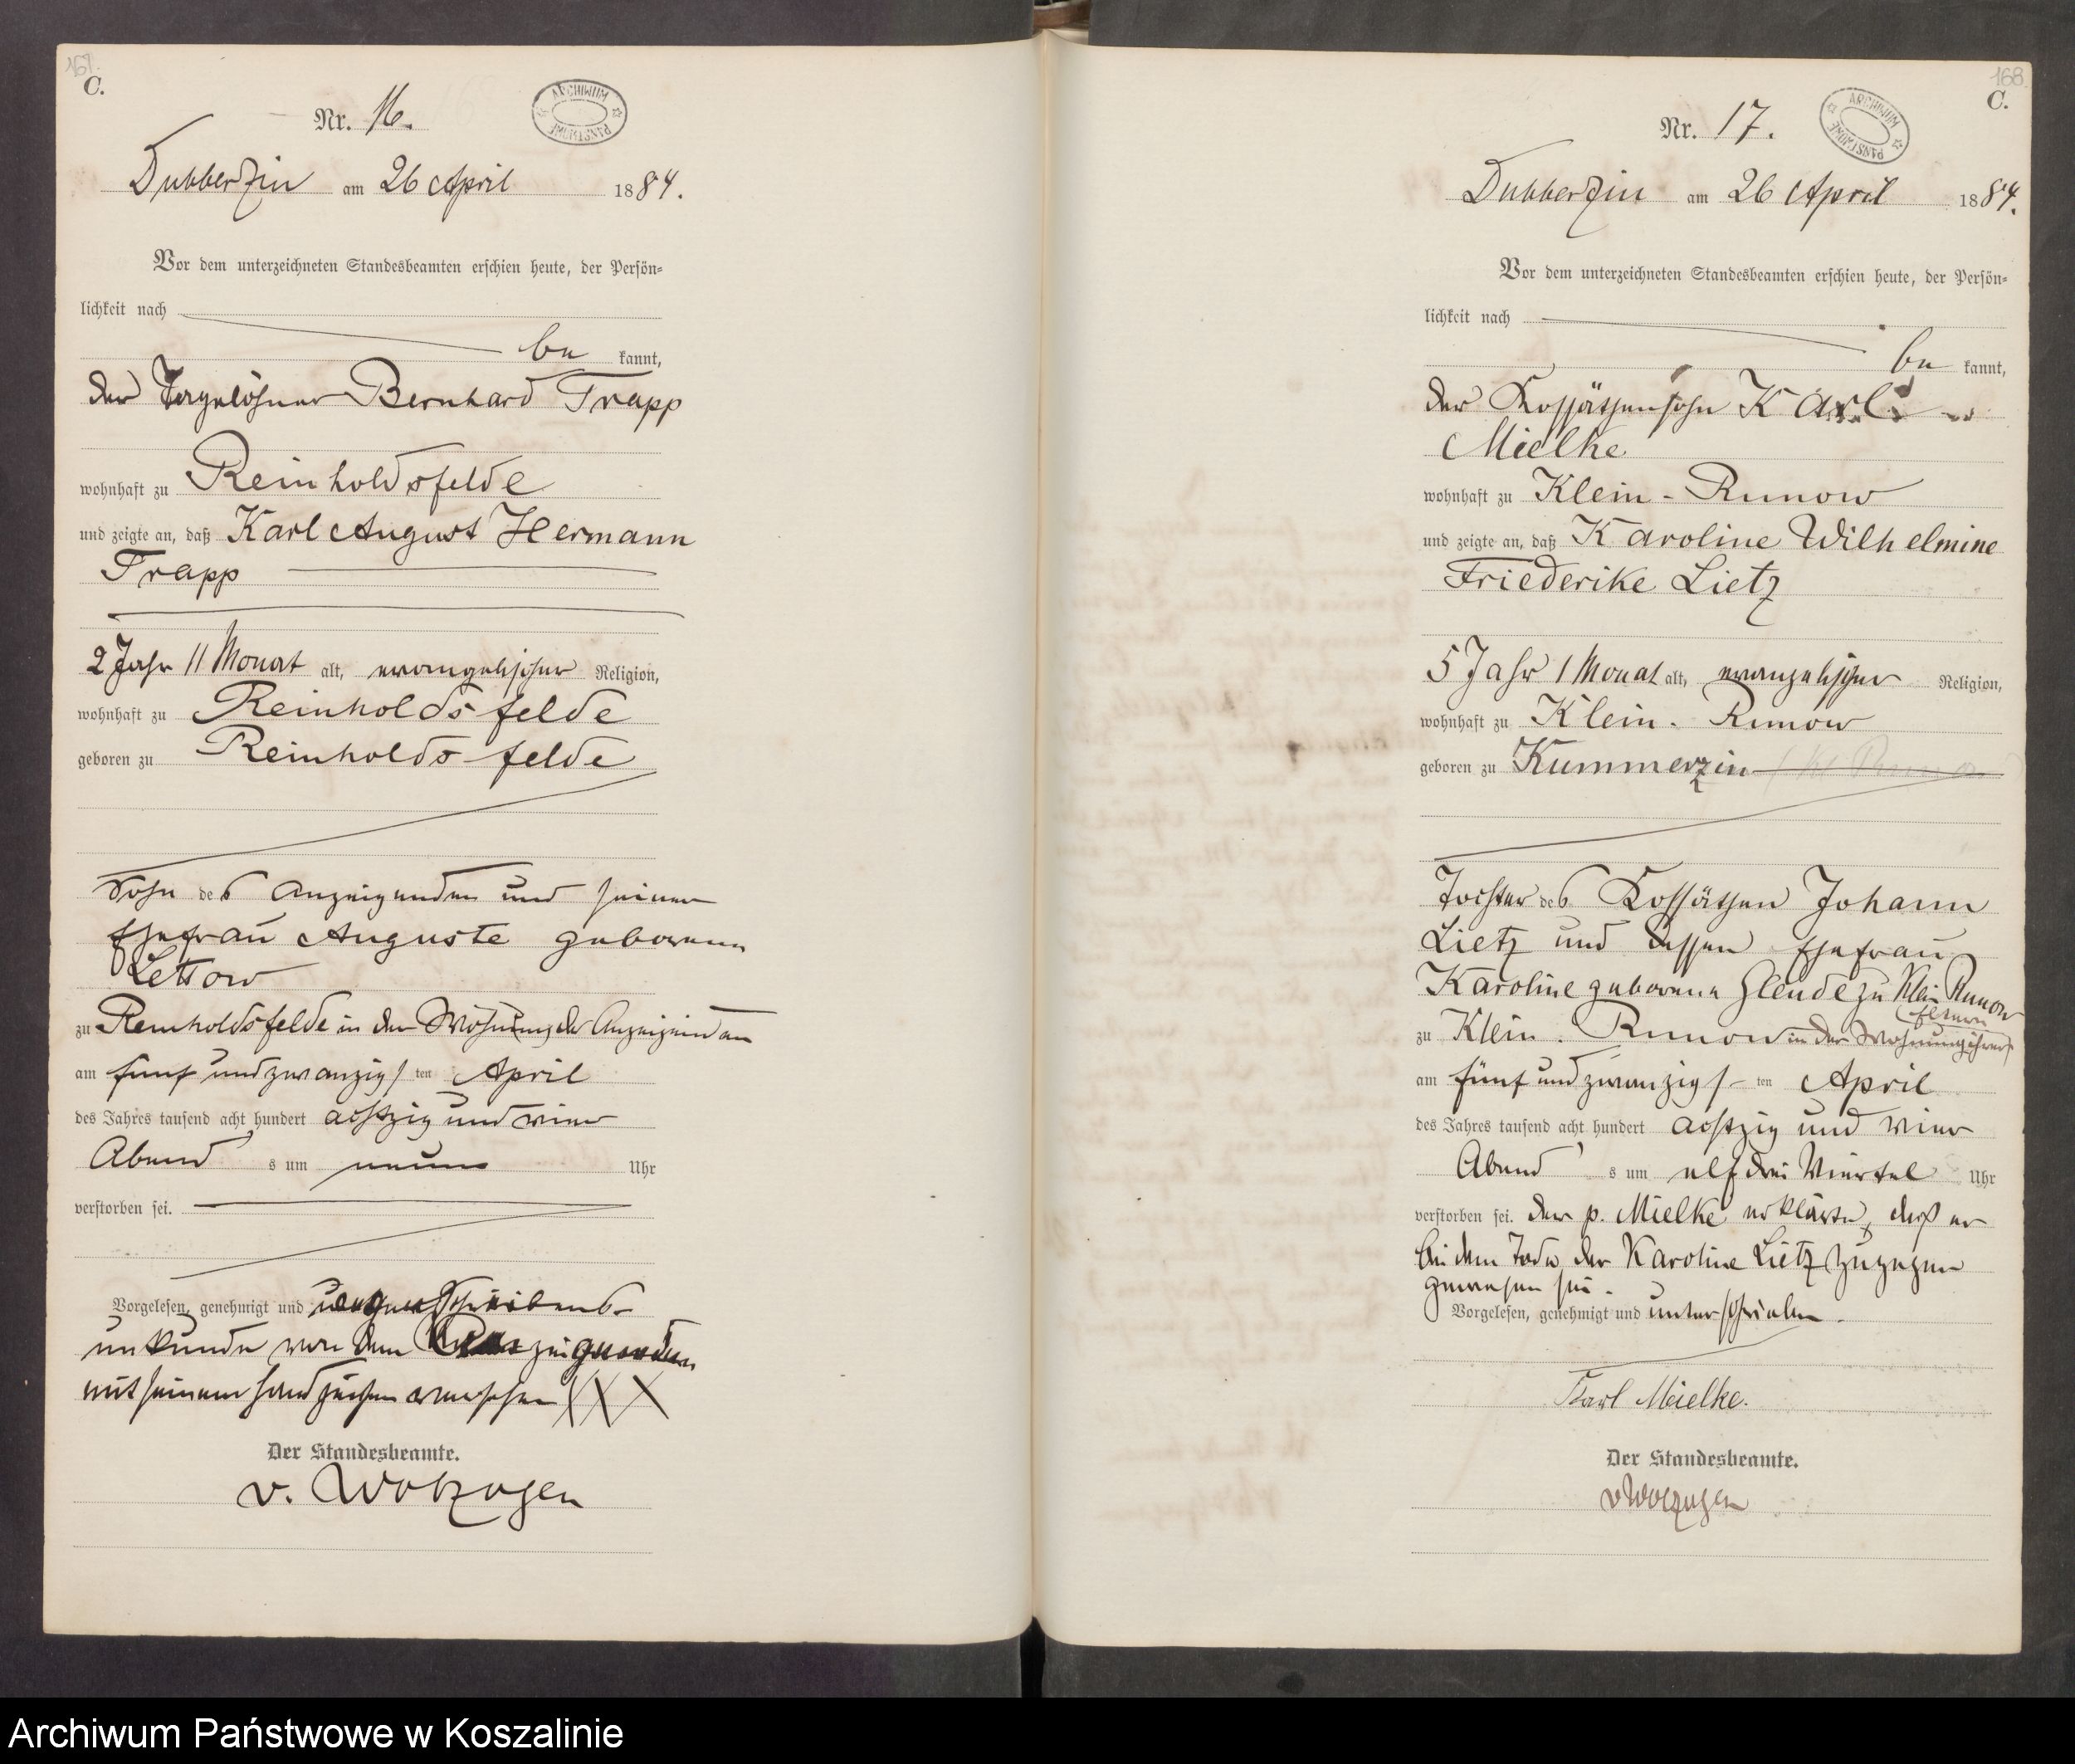 167.
C.
Nr. 16.
ARCHIWUM PAŃSTWOWE
Dubberzin am 26 April 1884.
Vor dem unterzeichneten Standesbeamten erschien heute, der Persön-
lichkeit nach
be kannt,
der Tagelöhner Bernhard Trapp
wohnhaft zu Reinholdsfelde
und zeigte an, daß Karl August Hermann
Trapp
2 Jahr 11 Monat alt, evangelischer Religion,
wohnhaft zu Reinholdsfelde
geboren zu Reinholdsfelde
Sohn des Anzeigenden und seiner
Ehefrau Auguste geborenen
Lettow
zu Reinholdsfelde in der Wohnung des Anzeigenden
am fünf und zwanzigs ten April
des Jahres tausend acht hundert achtzig und vier
Abend s um neun Uhr
verstorben sei.
Vorgelesen, genehmigt und wegen Schreibens-
unkunde von dem Anzeigenden
mit seinem Handzeichen versehen XXX
Der Standesbeamte.
v. Wolzogen
168
C.
Nr. 17.
ARCHIWUM PAŃSTWOWE
Dubberzin am 26 April 1884.
Vor dem unterzeichneten Standesbeamten erschien heute, der Persön-
lichkeit nach
be kannt,
der Kossäthensohn Karl
Mielke
wohnhaft zu Klein-Runow
und zeigte an, daß Karoline Wilhelmine
Friederike Lietz
5 Jahr 1 Monat alt, evangelischer Religion,
wohnhaft zu Klein-Runow
geboren zu Kummerzin
Tochter des Kossäthen Johann
Lietz und dessen Ehefrau
Karoline geborene Glende zu Klein Runow
zu Klein-Runow in der Wohnung ihrer Eltern
am fünf und zwanzigs ten April
des Jahres tausend acht hundert achtzig und vier
Abend s um elf drei Viertel Uhr
verstorben sei. Der p. Mielke erklärte, daß er
bei dem Tode der Karoline Lietz zugegen
gewesen sei.
Vorgelesen, genehmigt und unterschrieben.
Karl Mielke.
Der Standesbeamte.
v Wolzogen
Archiwum Państwowe w Koszalinie